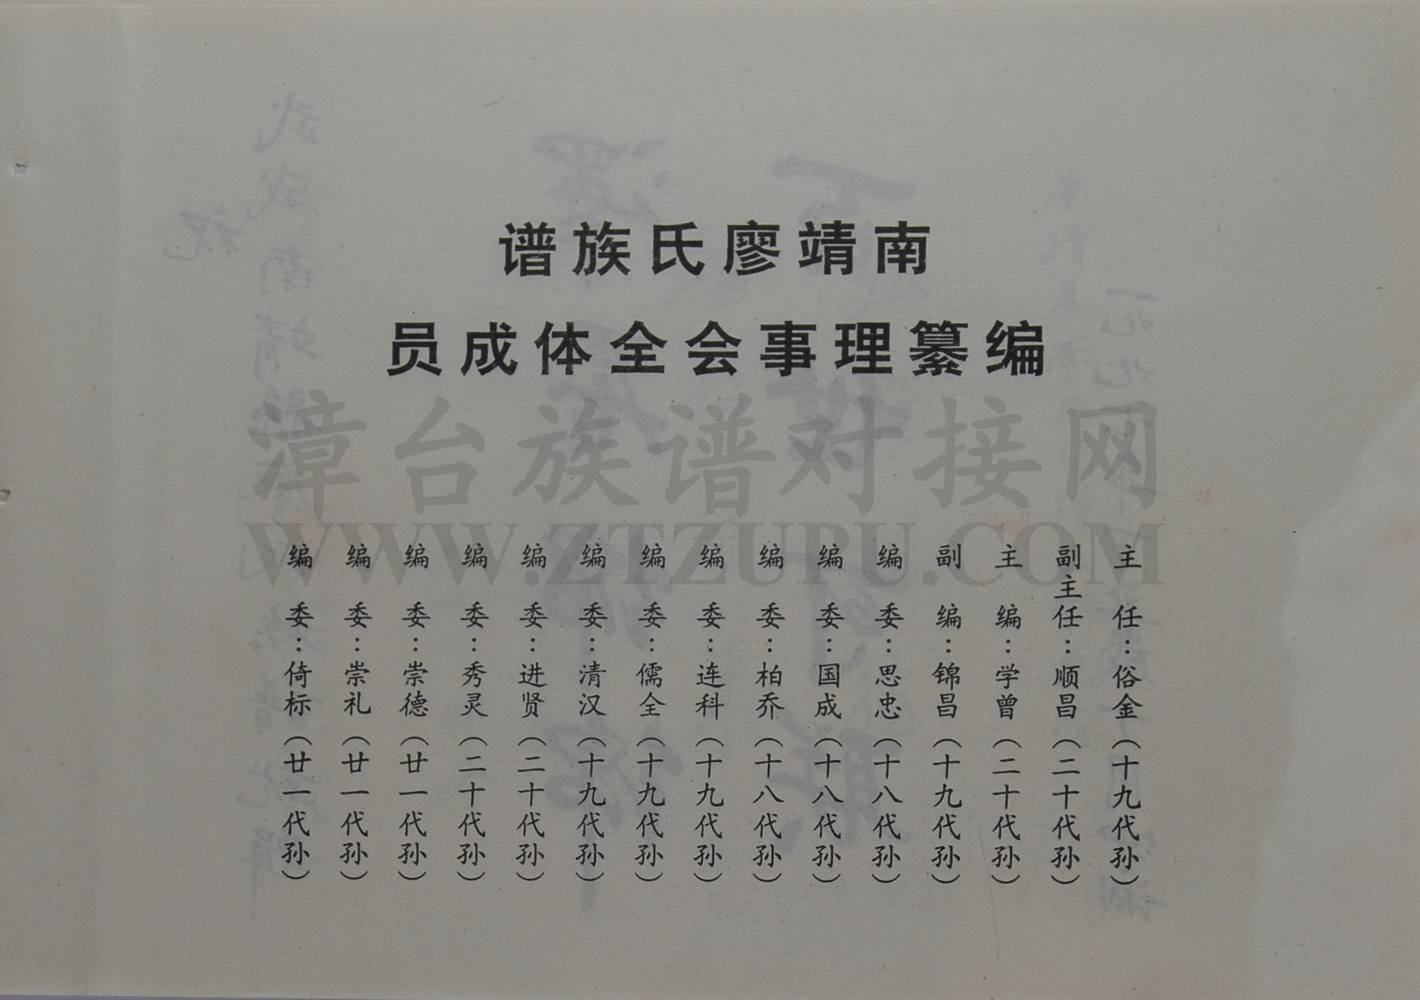 南靖廖氏族谱
编纂理事会全体成员
主任：俗金（十九代孙）
副主任：顺昌（二十代孙）
主编：学曾（二十代孙）
副编：锦昌（十九代孙）
编委：思忠（十八代孙）
编委：国成（十八代孙）
编委：柏乔（十八代孙）
编委：连科（十九代孙）
编委：儒全（十九代孙）
编委：清汉（十九代孙）
编委：进贤（二十代孙）
编委：秀灵（二十代孙）
编委：崇德（廿一代孙）
编委：崇礼（廿一代孙）
编委：倚标（廿一代孙）
漳台族谱对接网
WWW.ZTZUPU.COM